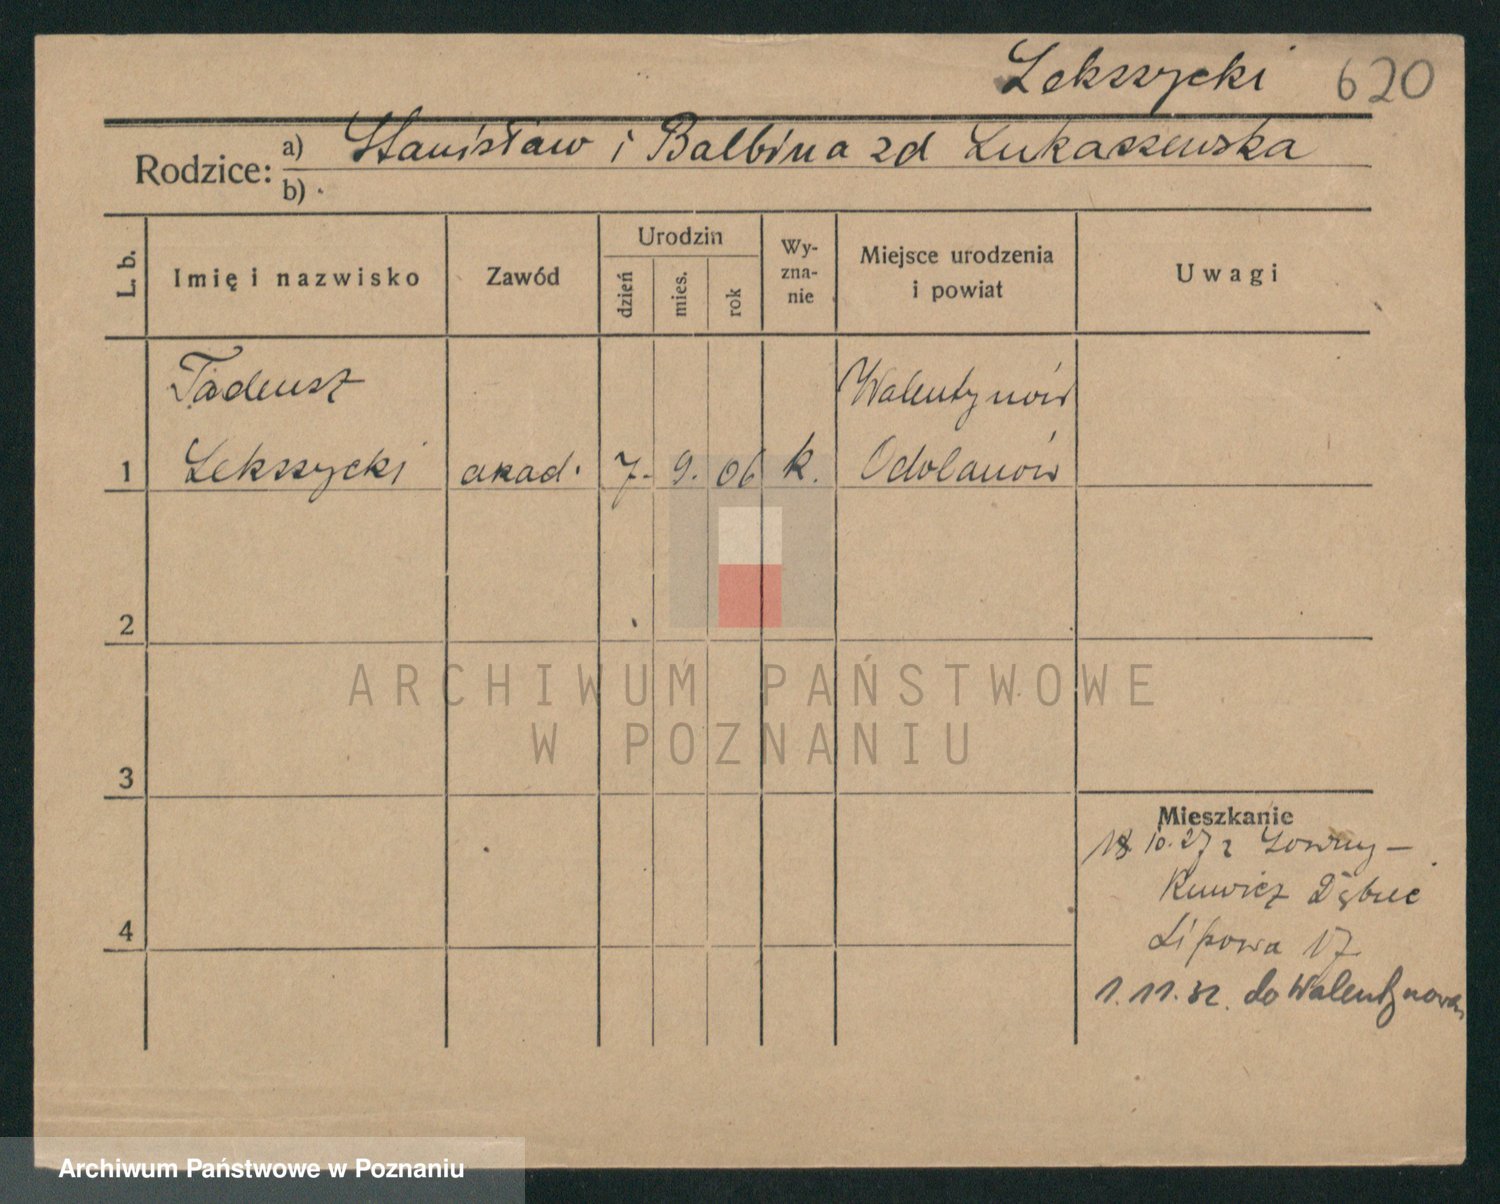 Lekszycki 620
Rodzice: a) Stanisław i Balbina zd Łukaszewska
b)
L. b.
Imię i nazwisko
Zawód
Urodzin
dzień
mies.
rok
Wy-
zna-
nie
Miejsce urodzenia
i powiat
Uwagi
Tadeusz
Walentynów
1 Lekszycki akad. 7. 9. 06 k. Odolanów
2
ARCHIWUM PAŃSTWOWE
W POZNANIU
3
Mieszkanie
18. 10. 27 z
Dębiec
4
Lipowa 17
1. 11. 32. do Walentynowa
Archiwum Państwowe w Poznaniu